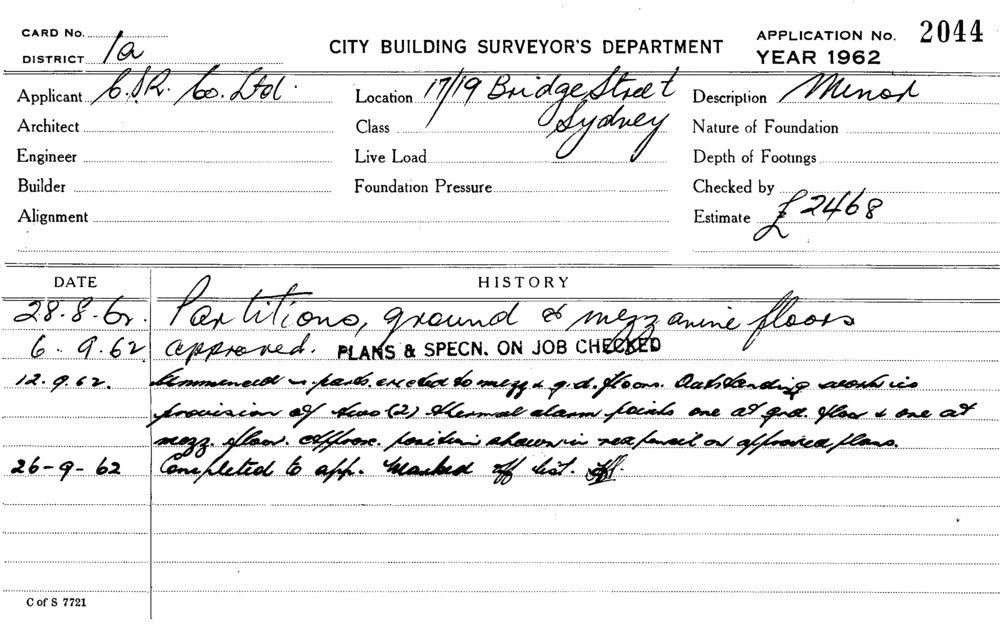 CARD No.
DISTRICT 1a
CITY BUILDING SURVEYOR'S DEPARTMENT
APPLICATION No. 2044
YEAR 1962
Applicant C.S.R. Co. Ltd.
Location 17/19 Bridge Street
Sydney
Description Minor
Architect
Class
Nature of Foundation
Engineer
Live Load
Depth of Footings
Builder
Foundation Pressure
Checked by
Alignment
Estimate £2468
DATE HISTORY
28.8.62. Partitions, ground & mezzanine floors
6.9.62 approved. PLANS & SPECN. ON JOB CHECKED
12.9.62. Commenced & parts. erected to mezz & gd. floors. Outstanding work is
provision of two (2) thermal alarm points one at grd. floor & one at
mezz. floor. Approx. position shown in red pencil on approved plans.
26-9-62 Completed to app. Marked off list.
C of S 7721